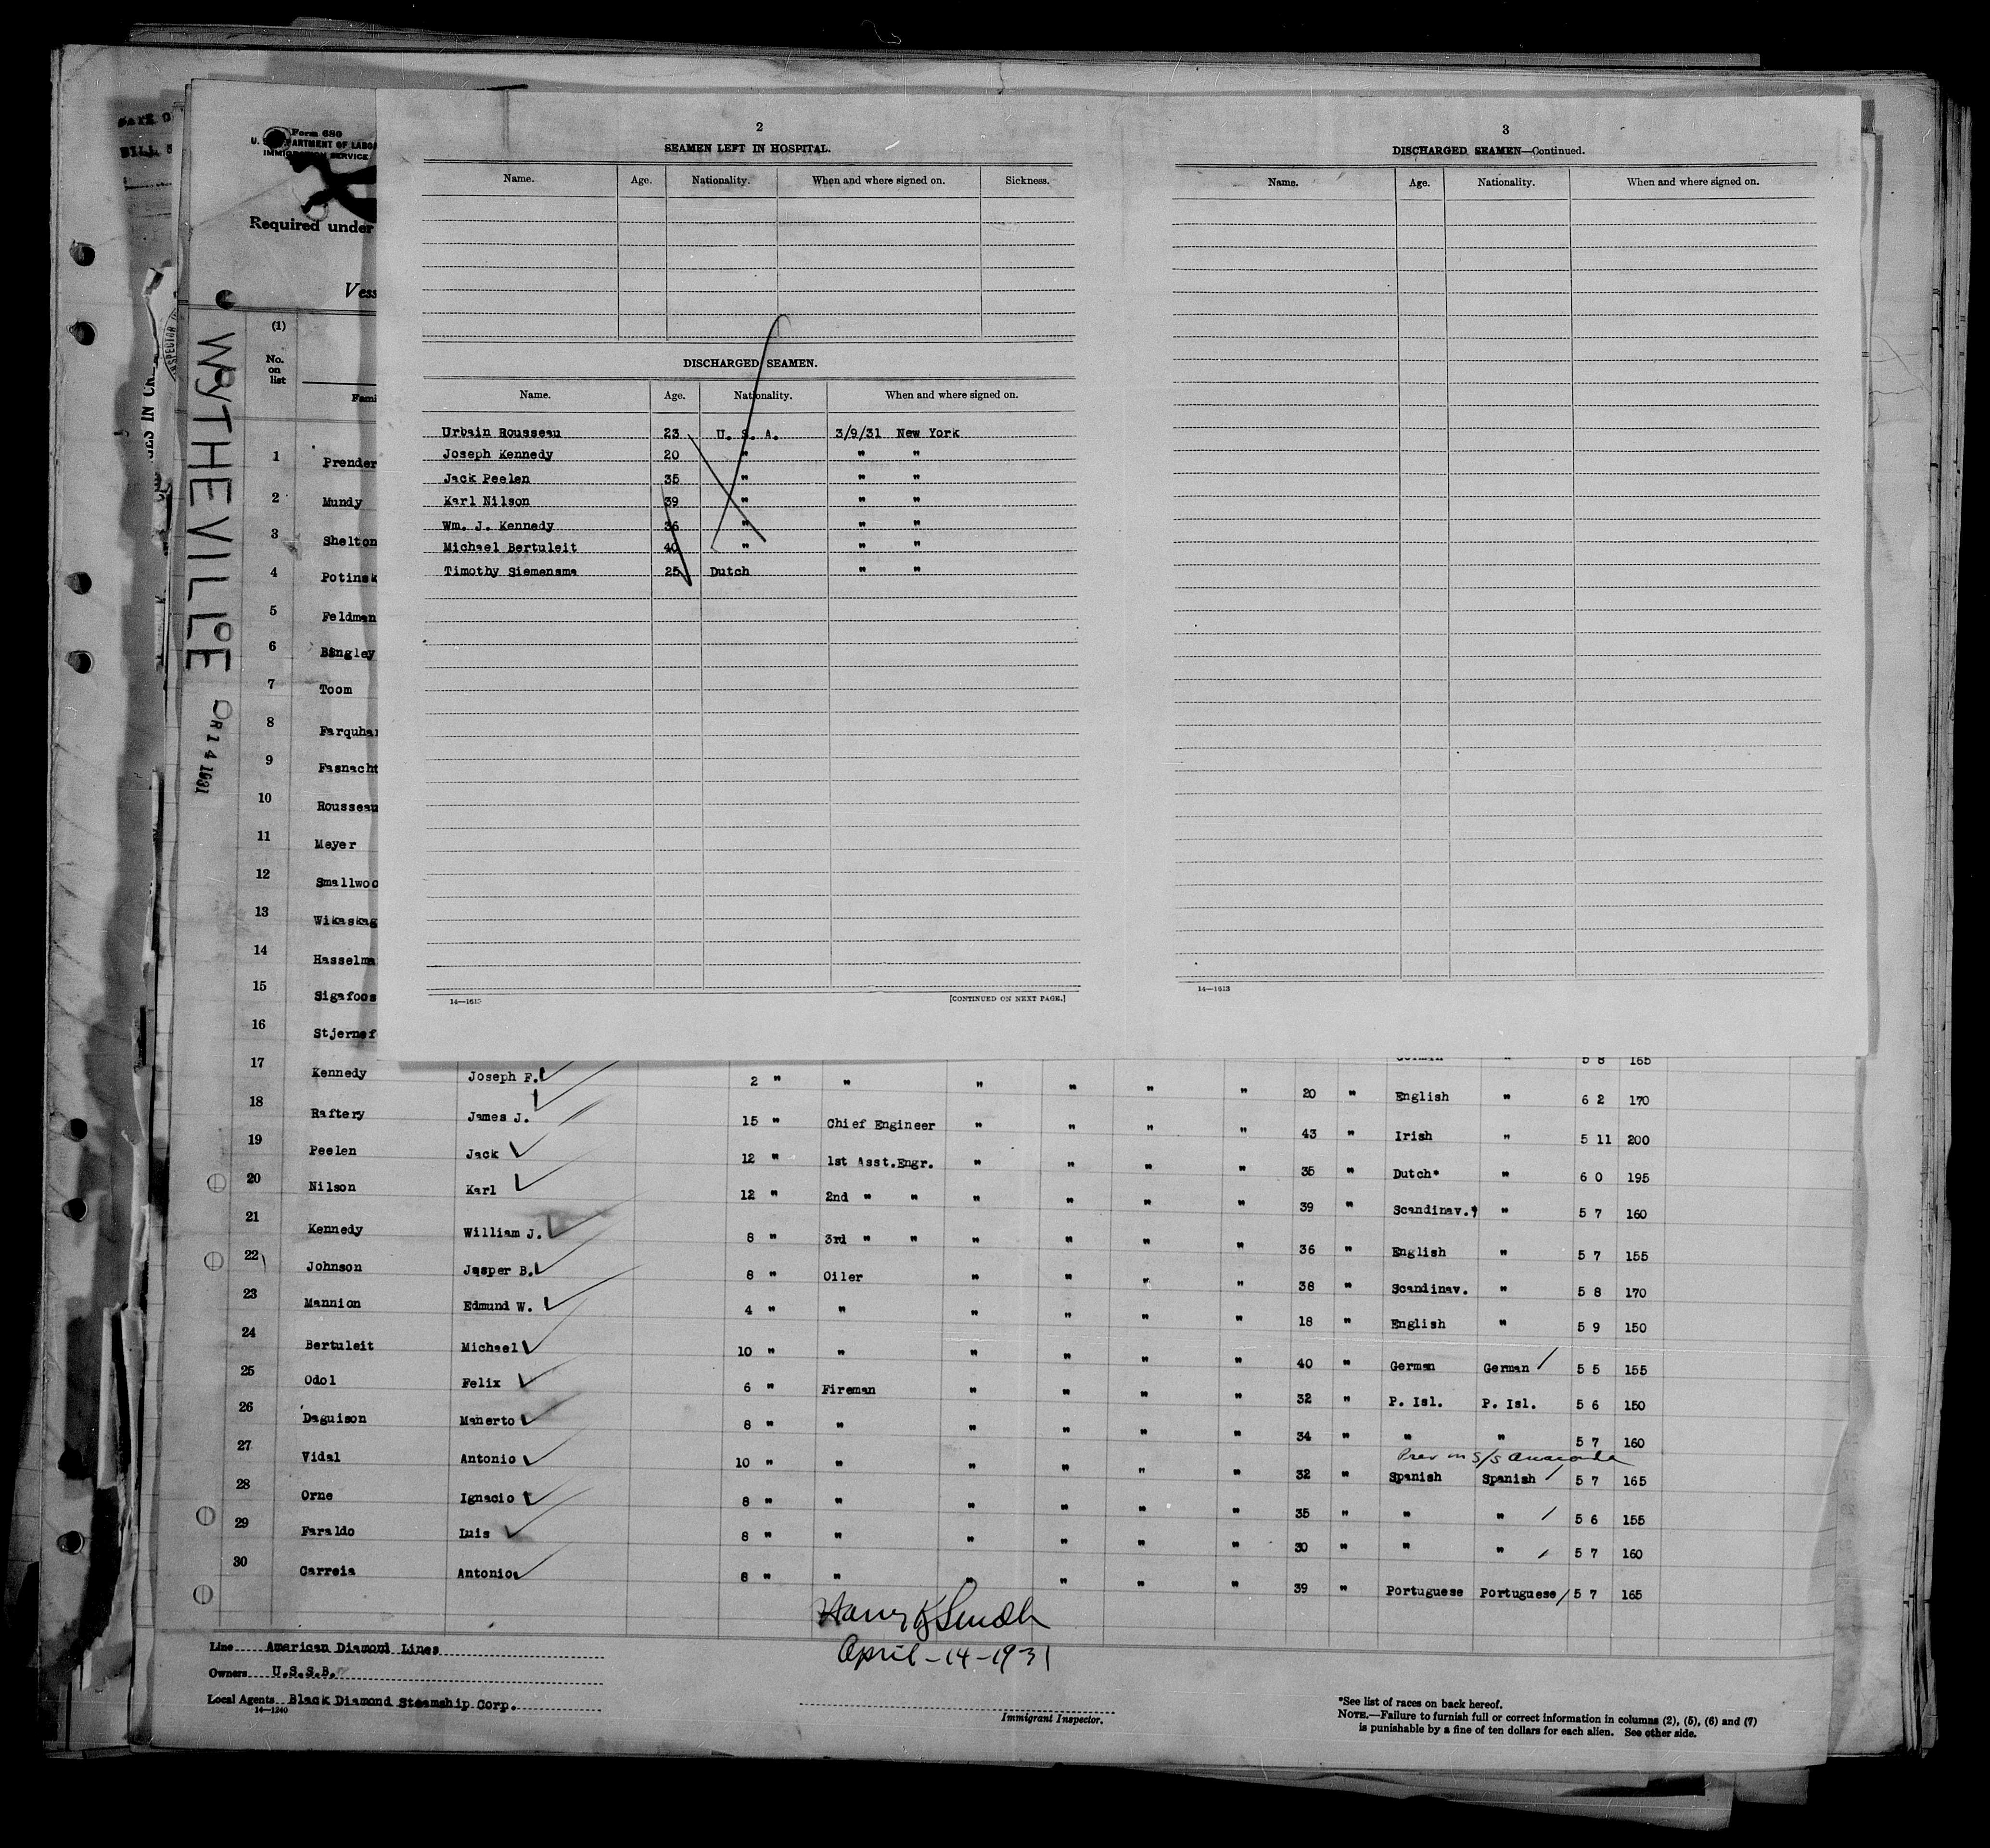 Form 680
U. S. DEPARTMENT OF LABOR
IMMIGRATION SERVICE
Required under
Vess
WYTHEVILLE
R 14 1931
2
SEAMEN LEFT IN HOSPITAL.
Name. Age. Nationality. When and where signed on. Sickness.
DISCHARGED SEAMEN.
Name. Age. Nationality. When and where signed on.
Urbain Rousseau 23 U. S. A. 3/9/31 New York
Joseph Kennedy 20 " " "
Jack Peelen 35 " " "
Karl Nilson 39 " " "
Wm. J. Kennedy 36 " " "
Michael Bertuleit 40 " " "
Timothy Siemensma 25 Dutch " "
14—1613 [CONTINUED ON NEXT PAGE.]
3
DISCHARGED SEAMEN—Continued.
Name. Age. Nationality. When and where signed on.
14—1613
(1)
No. on list
Fami
1 Prender
2 Mundy
3 Shelton
4 Potinsk
5 Feldman
6 Bingley
7 Toom
8 Farquhar
9 Fasnacht
10 Rousseau
11 Meyer
12 Smallwoo
13 Wikaskag
14 Hasselma
15 Sigafoos
16 Stjernef 5 8 165
17 Kennedy Joseph F. 2 " " " " " " 20 " English " 6 2 170
18 Raftery James J. 15 " Chief Engineer " " " " 43 " Irish " 5 11 200
19 Peelen Jack 12 " 1st Asst.Engr. " " " " 35 " Dutch* " 6 0 195
20 Nilson Karl 12 " 2nd " " " " " " 39 " Scandinav. " 5 7 160
21 Kennedy William J. 8 " 3rd " " " " " " 36 " English " 5 7 155
22 Johnson Jasper B. 8 " Oiler " " " " 38 " Scandinav. " 5 8 170
23 Mannion Edmund W. 4 " " " " " " 18 " English " 5 9 150
24 Bertuleit Michael 10 " " " " " " 40 " German German 5 5 155
25 Odol Felix 6 " Fireman " " " " 32 " P. Isl. P. Isl. 5 6 150
26 Daguison Manerto 8 " " " " " " 34 " " " 5 7 160
Prev on S/S
27 Vidal Antonio 10 " " " " " " 32 " Spanish Spanish 5 7 165
28 Orne Ignacio 8 " " " " " " 35 " " " 5 6 155
29 Faraldo Luis 8 " " " " " " 30 " " " 5 7 160
30 Carreia Antonio 8 " " " " " " 39 " Portuguese Portuguese 5 7 165
Line American Diamond Lines
Owners U.S.S.B.
Local Agents Black Diamond Steamship Corp.
14—1240
Harry
April-14-1931
Immigrant Inspector.
*See list of races on back hereof.
NOTE.—Failure to furnish full or correct information in columns (2), (5), (6) and (7)
is punishable by a fine of ten dollars for each alien. See other side.